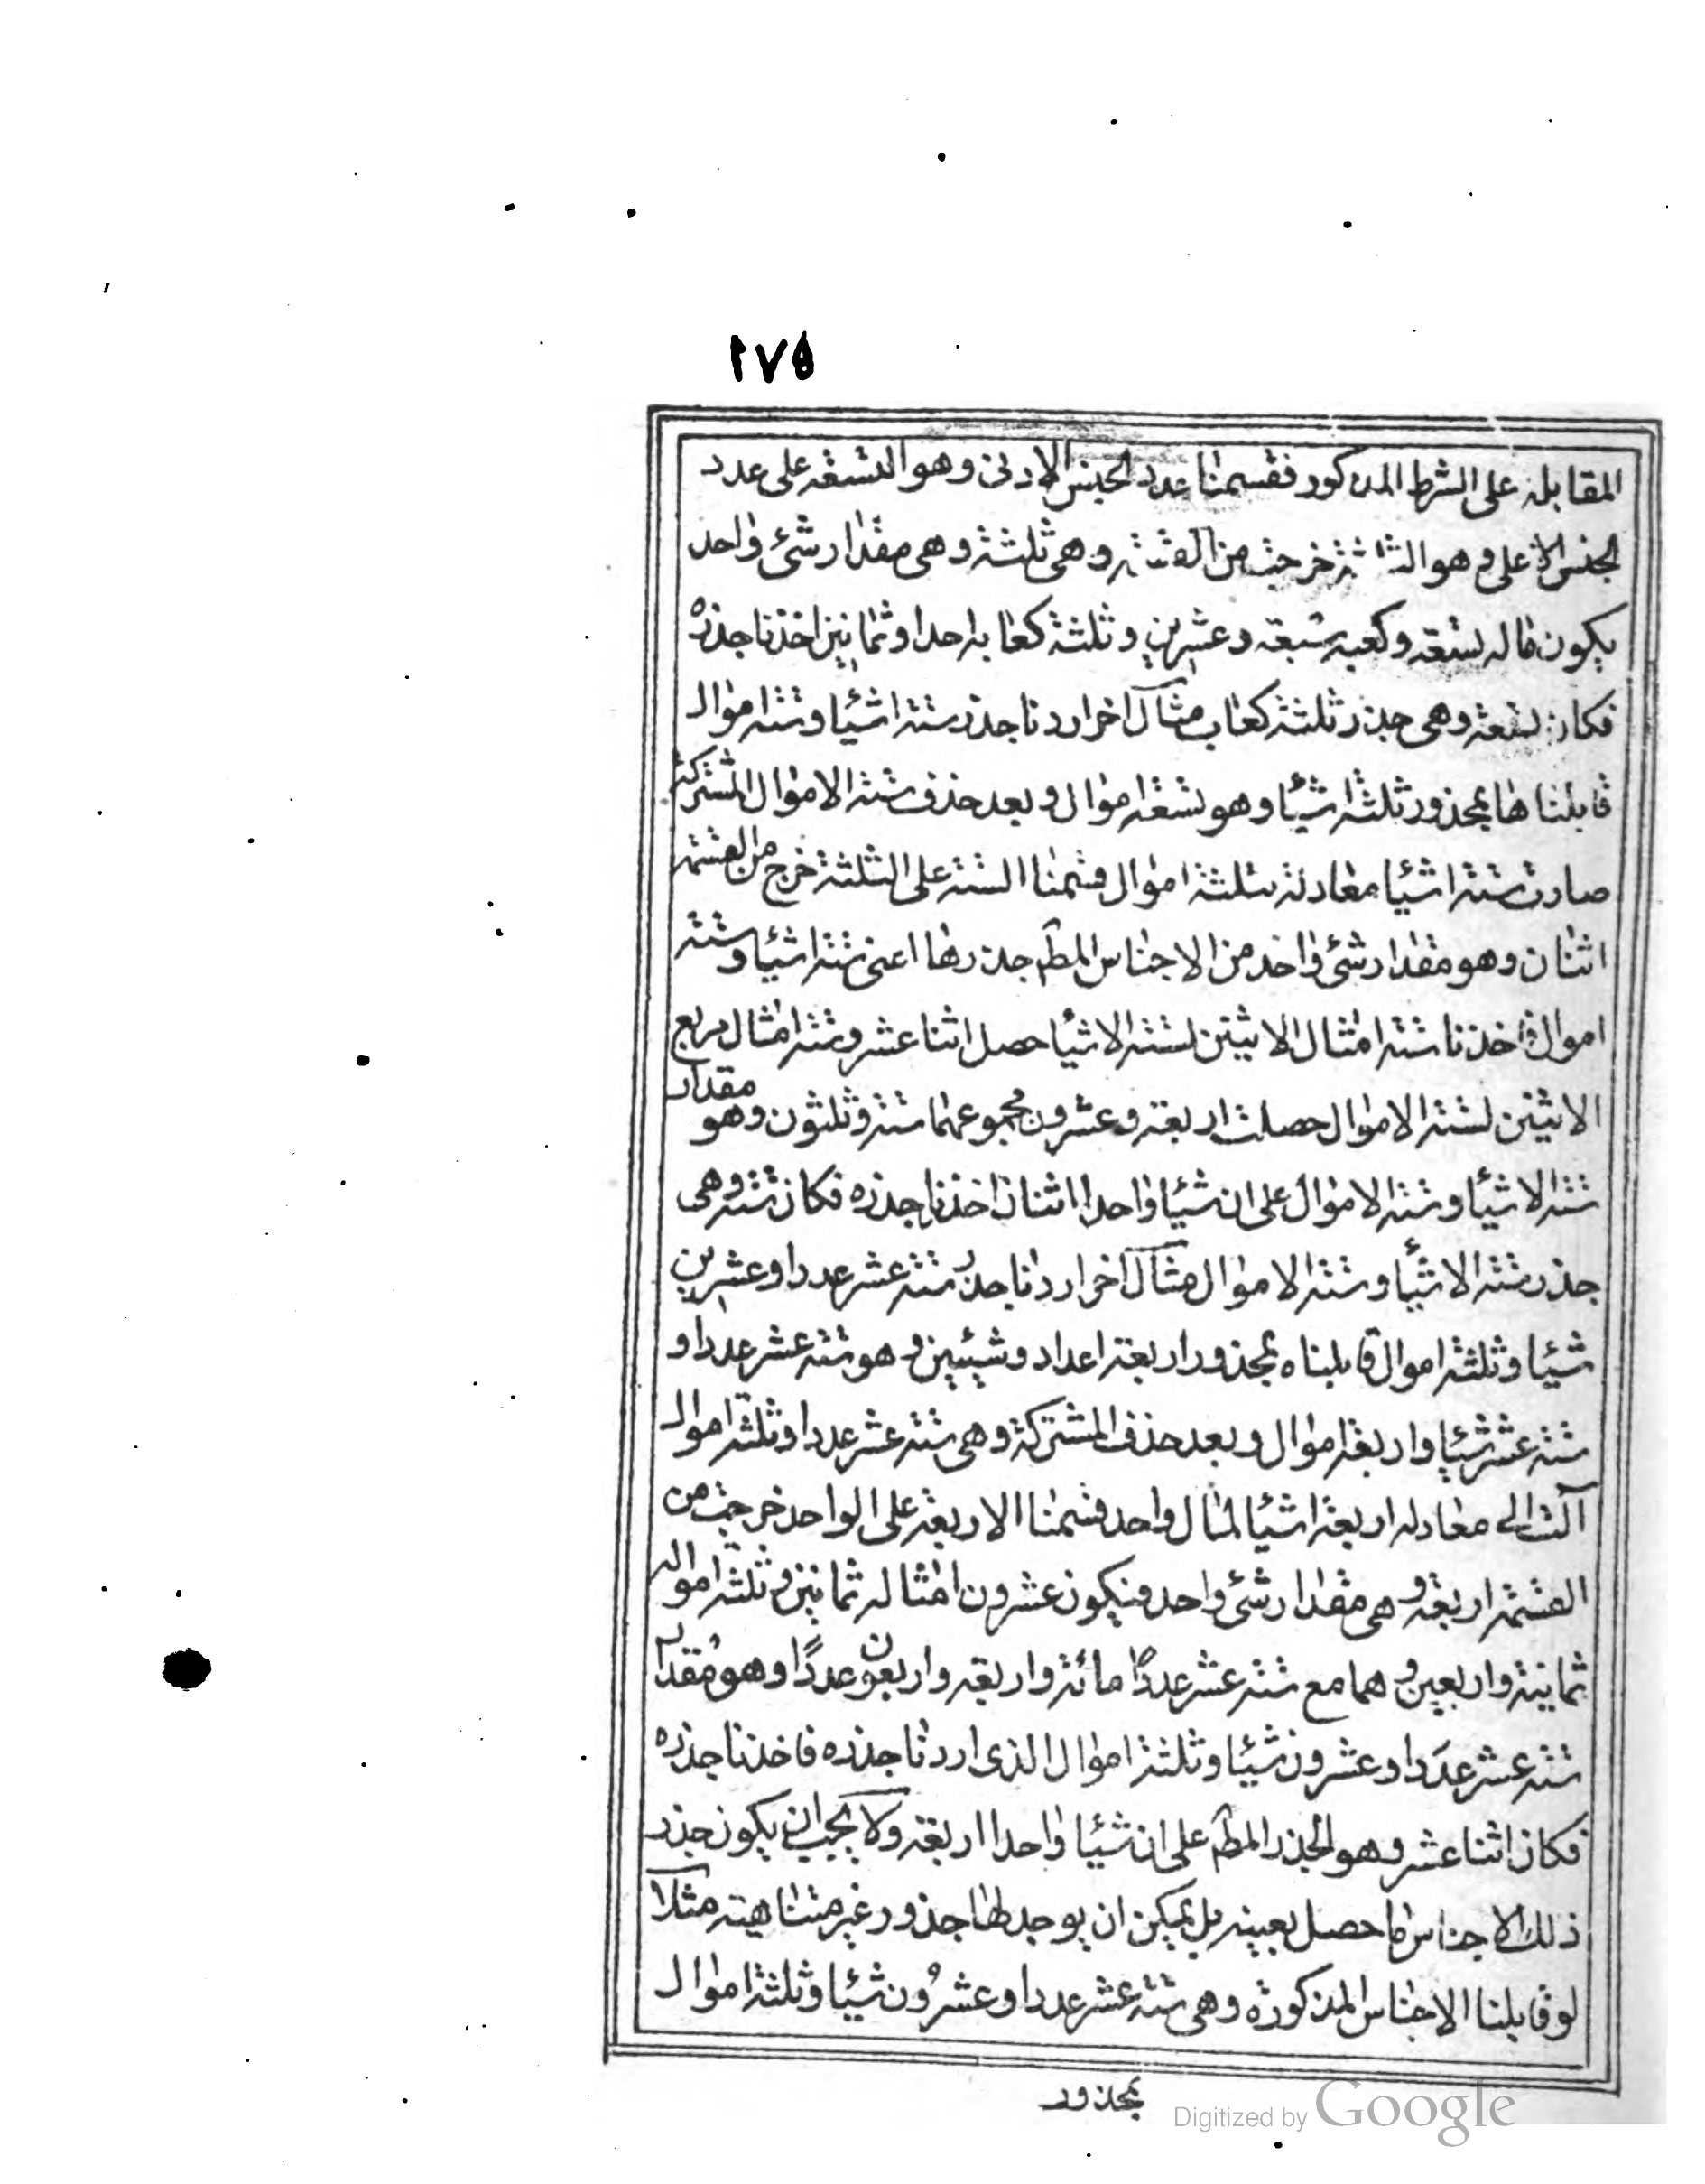 ١٧٥
المقابلة على الشرط المذكور فقسمنا عدد الجنس الادنى وهو التسعة على عدد
الجنس الاعلى وهو الثلثة خرجت من القسمة وهى ثلثة وهى مقدار شئ واحد
يكون ماله تسعة وكعبه سبعة وعشرين وثلثة كعابه احدا وثمانين اخذنا جذره
فكان تسعة وهى جذر ثلثة كعاب مثال آخر اردنا جذر ستة اشيا وستة اموال
قابلناها بمجذور ثلثة اشيا وهو تسعة اموال وبعد حذف ستة الاموال المشتركة
صارت ستة اشيا معادلة لثلثة اموال قسمنا الستة على الثلثة خرج من القسمة
اثنان وهو مقدار شئ واحد من الاجناس المطم جذرها اعنى ستة اشيا وستة
اموال فاخذنا ستة امثال الاثينن لستة الاشيا حصل اثنا عشر وستة امثال مربع
الاثينن لستة الاموال حصلت اربعة وعشرون مجموعهما ستة وثلثون وهو مقدار
ستة الاشيا وستة الاموال على ان شيئا واحدا اثنان اخذنا جذره فكان ستة وهى
جذر ستة الاشيا وستة الاموال مثال آخر اردنا جذر ستة عشر عددا وعشرين
شيئا وثلثة اموال قابلناه بمجذور اربعة اعداد وشيئين وهو ستة عشر عددا و
ستة عشر شيئا واربعة اموال وبعد حذف المشتركة وهى ستة عشر عددا وثلثة اموال
آلت الى معادلة اربعة اشيا لمال واحد قسمنا الاربعة على الواحد خرجت من
القسمة اربعة وهى مقدار شئ واحد فيكون عشرون امثاله ثمانين وثلثة امواله
ثمانية واربعين وهما مع ستة عشر عددًا مائة واربعة واربعون عددًا وهو مقدار
ستة عشر عددا وعشرون شيئا وثلثة اموال الذى اردنا جذره فاخذنا جذره
فكان اثنا عشر وهو الجذر المطم على ان شيئا واحدا اربعة ولا يجب ان يكون جذر
ذلك الاجناس ما حصل بعينه بل يمكن ان يوجد لها جذور غير متناهية مثلا
لو قابلنا الاجناس المذكورة وهى ستة عشر عددا وعشرون شيئا وثلثة اموال
بمجذور
Digitized by Google